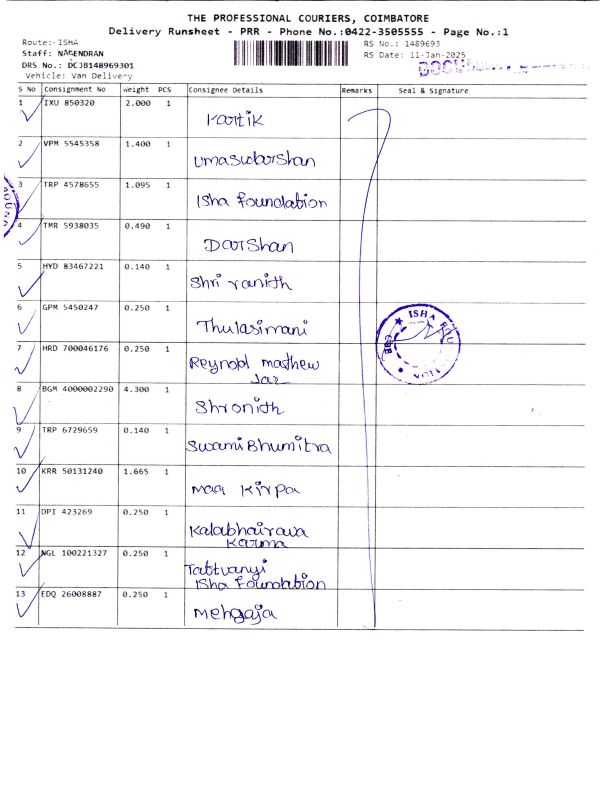 THE PROFESSIONAL COURIERS, COIMBATORE
Delivery Runsheet - PRR - Phone No.:0422-3505555 - Page No.:1
Route:- ISHA
RS No.: 1489693
Staff: NAGENDRAN
RS Date: 11-Jan-2025
DRS No.: DCJB148969301
Vehicle: Van Delivery
S No Consignment No Weight PCS Consignee Details Remarks Seal & Signature
1 IXU 850320 2.000 1
Kartik
2 VPM 5545358 1.400 1
umasudarshan
3 TRP 4578655 1.095 1
Isha foundation
4 TMR 5938035 0.490 1
Darshan
5 HYD 83467221 0.140 1
Shri ranith
6 GPM 5450247 0.250 1
Thulasimani
ISHA
7 HRD 700046176 0.250 1
Reynold mathew
Jaz
8 BGM 4000002290 4.300 1
Shronith
9 TRP 6729659 0.140 1
Swami Bhumitra
10 KRR 50131240 1.665 1
maa Kirpa
11 DPI 423269 0.250 1
Kalabhairava
Karma
12 NGL 100221327 0.250 1
Tattvanyi
Isha foundation
13 EDQ 26008887 0.250 1
Mehgaja